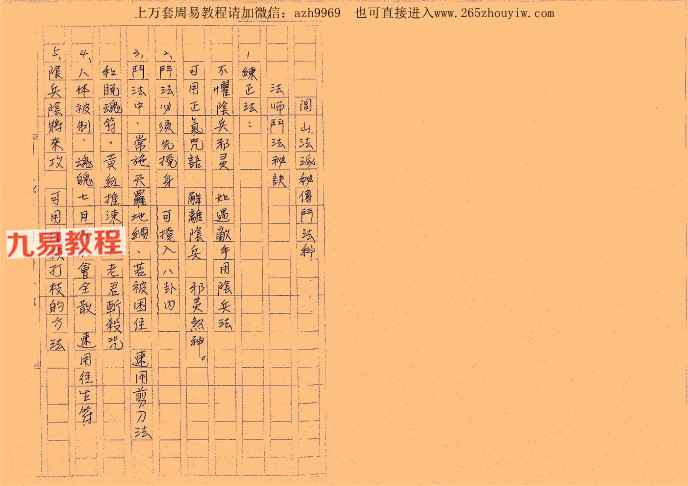 上万套周易教程请加微信：azh9969　也可直接进入www.265zhouyiw.com
閭山法派秘傳鬥法科
法師鬥法秘訣
1、練正法：
不懼陰兵邪灵　如遇敵手用陰兵法
可用正氣咒語　解離陰兵　邪灵煞神。
2、鬥法必須先藏身　可藏入八卦内
3、鬥法中、常施天羅地網、若被困住　速用剪刀法
和脱魂符、黄紅推　老君斬殺咒
4、人体被制、魂魄七月　會全散　速用往生符
5、陰兵陰將來攻　可用　打枝的方法
九易教程